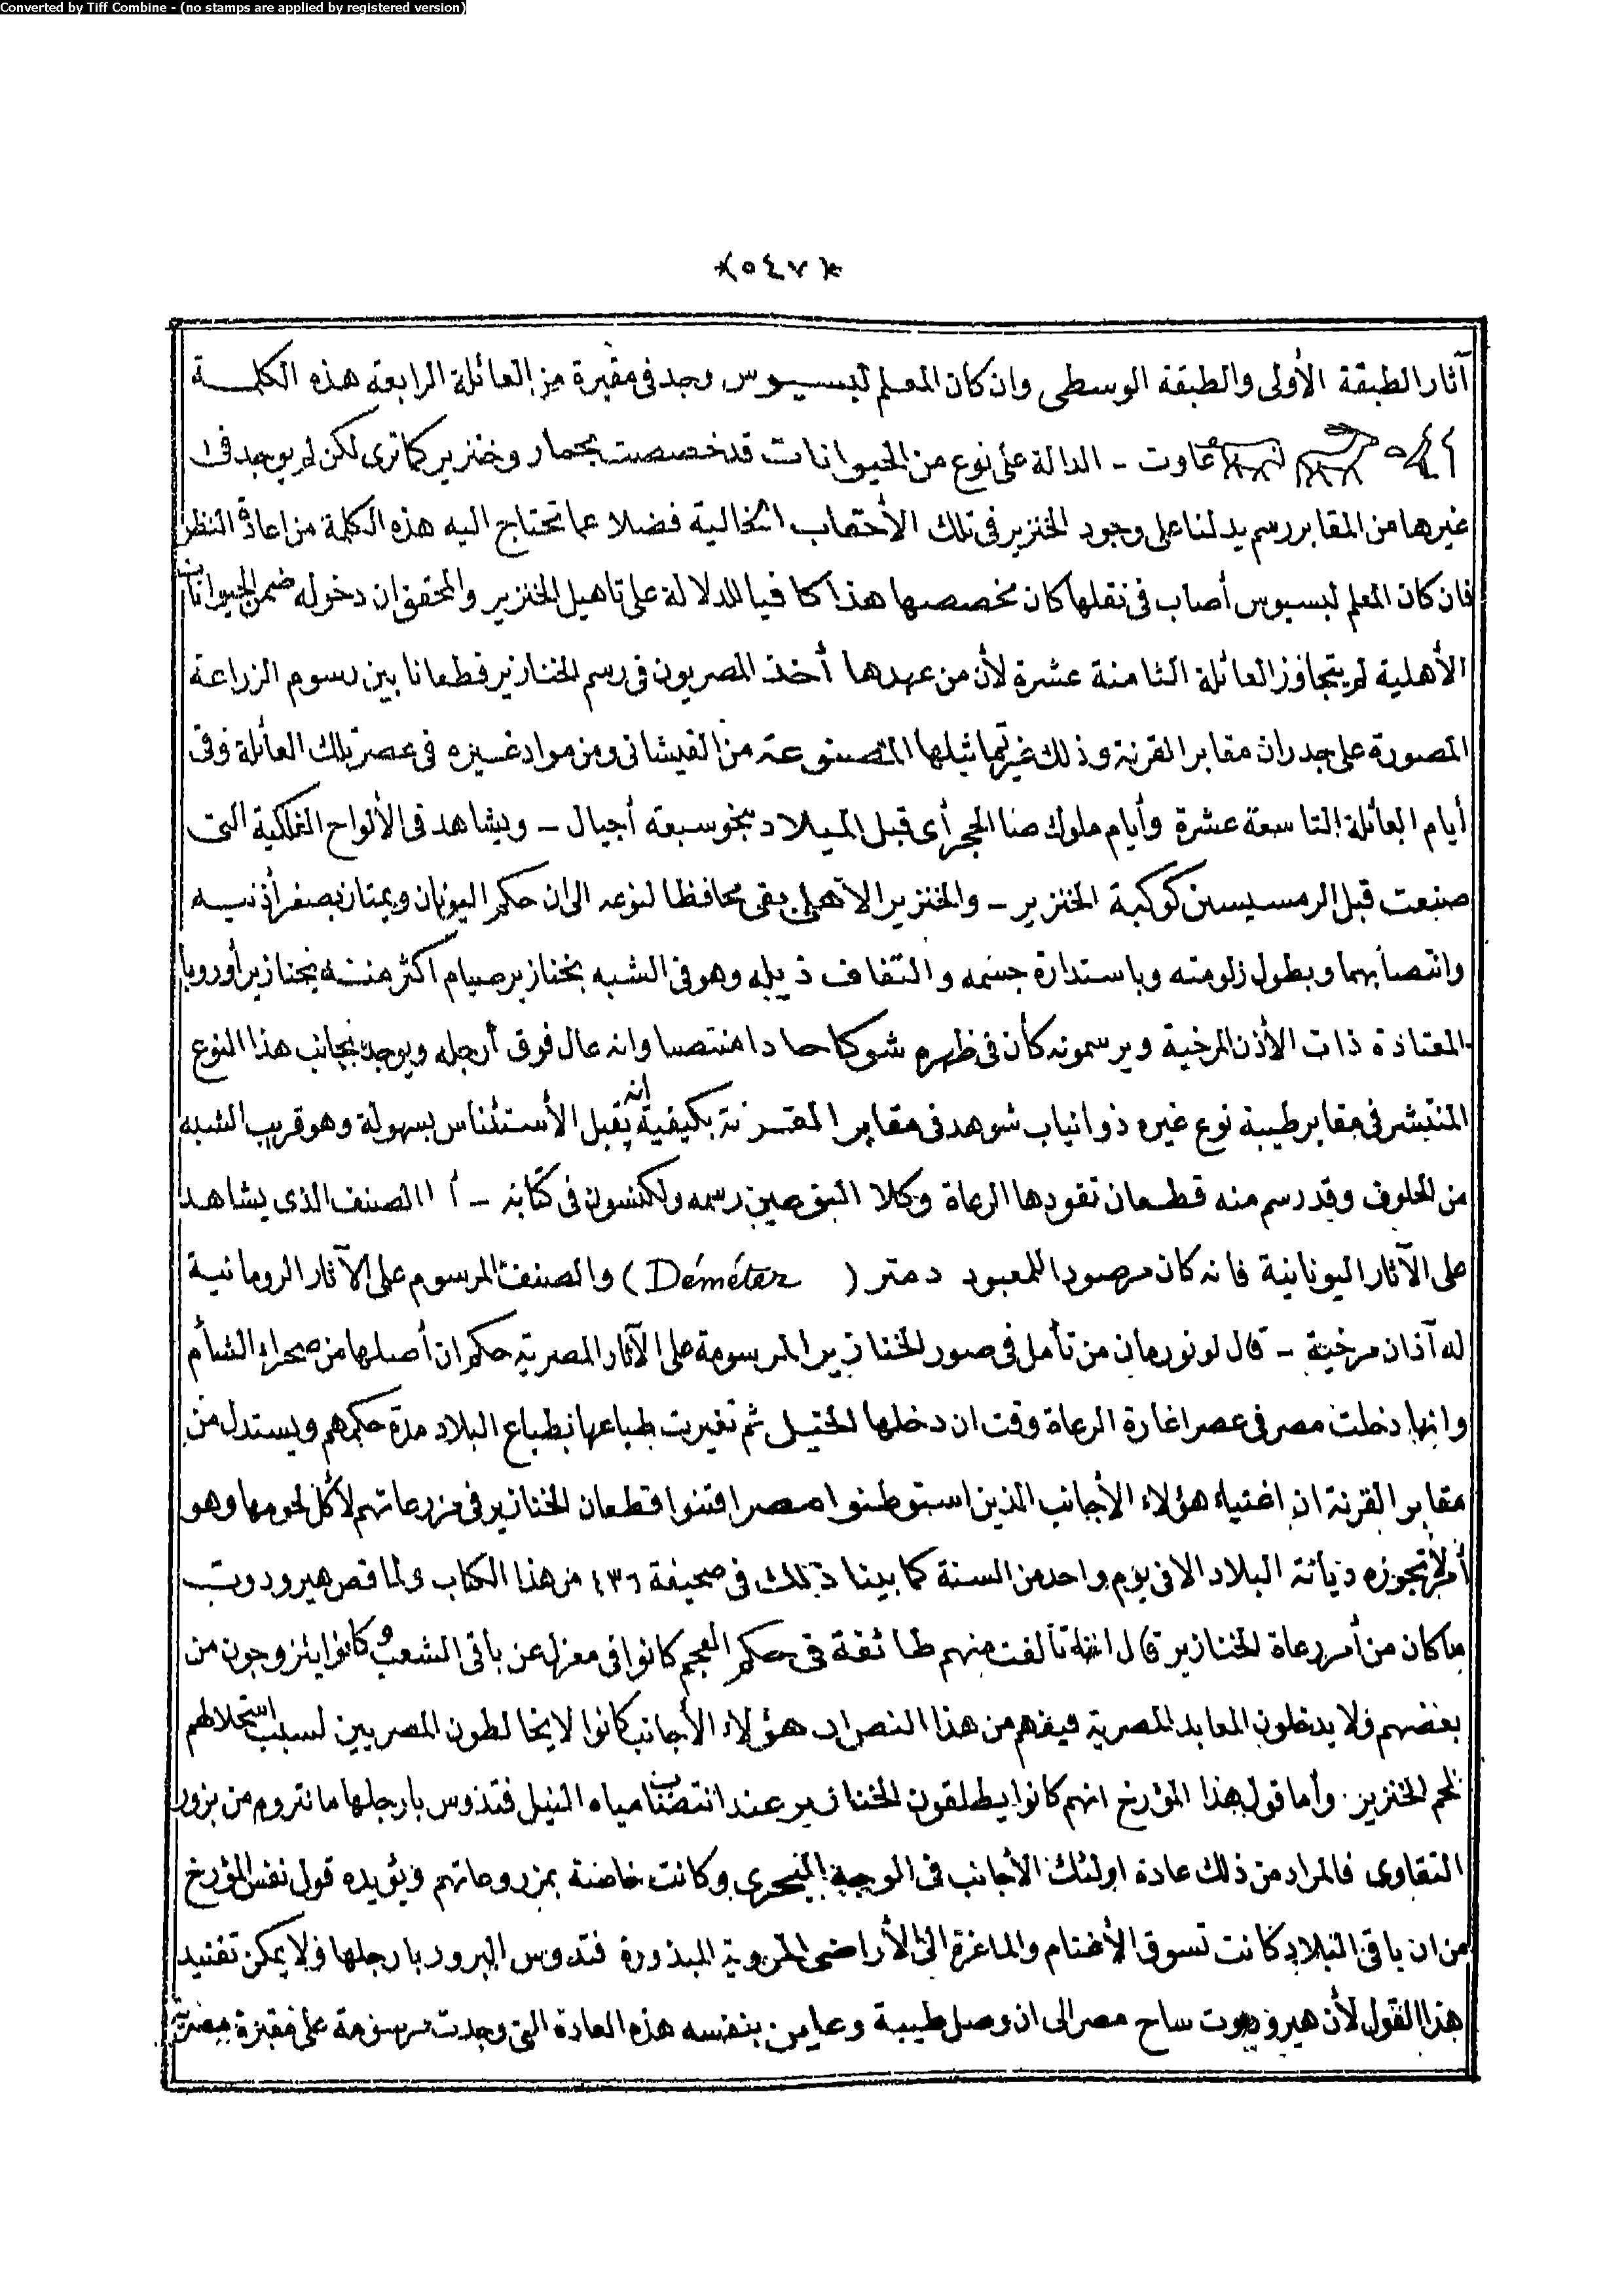 Converted by Tiff Combine - (no stamps are applied by registered version)
﴿٥٤٧﴾
آثار الطبقة الأولى والطبقة الوسطى وان كان المعلم لبسيوس وجد فى مقبرة من العائلة الرابعة هذه الكلمة
عاوت - الدالة على نوع من الحيوانات قد خصصت بحمار وخنزير كما ترى لكن لم يوجد فى
غيرها من المقابر رسم يدلنا على وجود الخنزير فى تلك الأحقاب الخالية فضلا عما تحتاج اليه هذه الكلمة من اعادة النظر
فان كان المعلم لبسيوس أصاب فى نقلها كان مخصصها هذا كافيا للدلالة على تاهيل الخنزير والمحقق ان دخوله ضمن الحيوانات
الأهلية لم يتجاوز العائلة الثامنة عشرة لأن من عهدها أخذ المصريون فى رسم الخنازير قطعانا بين رسوم الزراعة
المصورة على جدران مقابر القرنة وذلك غير تماثيلها المصنوعة من القيشانى ومن مواد غيره فى عصر تلك العائلة وفى
أيام العائلة التاسعة عشرة وأيام ملوك صا الحجر أى قبل الميلاد بنحو سبعة أجيال - ويشاهد فى الألواح الفلكية التى
صنعت قبل الرمسيسين كوكبة الخنزير - والخنزير الأهلى بقى محافظا لنوعه الى ان حكم اليونان ويمتاز بصغر أذنيه
وانتصابهما وبطول زلومته وباستدارة جسمه والتفاف ذيله وهو فى الشبه بخنازير صيام اكثر منه بخنازير أوروبا
المعتادة ذات الأذن المرخية ويرسمونه كأن فى ظهره شوكا حادا منتصبا وانه عال فوق أرجله ويوجد بجانب هذا النوع
المنتشر فى مقابر طيبة نوع غيره ذو انياب شوهد فى مقابر القرنة بكيفية انه يقبل الأستئناس بسهولة وهو قريب الشبه
من الحلوف وقد رسم منه قطعان تقودها الرعاة وكلا النوعين رسمه ولكنسون فى كتابه - أما الصنف الذى يشاهد
على الآثار اليونانية فانه كان مرصودا للمعبود دمتر ( Déméter ) والصنف المرسوم على الآثار الرومانية
له آذان مرخية - قال لونورمان من تأمل فى صور الخنازير المرسومة على الآثار المصرية حكم ان أصلها من صحراء الشأم
وانها دخلت مصر فى عصر اغارة الرعاة وقت ان دخلها الخيل ثم تغيرت طباعها بطباع البلاد مدة حكمهم ويستدل من
مقابر القرنة ان اغنياء هؤلاء الأجانب الذين استوطنوا مصر اقتنوا قطعان الخنازير فى مزرعاتهم لأكل لحومها وهو
أمر لم تجوزه ديانة البلاد الا فى يوم واحد من السنة كما بينا ذلك فى صحيفة ٤٣٦ من هذا الكتاب ولما قص هيرودوت
ما كان من أمر رعاة الخنازير قال انه تألفت منهم طائفة فى حكم العجم كانوا فى معزل عن باقى الشعب وكانوا يتزوجون من
بعضهم ولا يدخلون المعابد المصرية فيفهم من هذا النص ان هؤلاء الأجانب كانوا لا يخالطون المصريين لسبب استحلالهم
لحم الخنزير. وأما قول هذا المؤرخ انهم كانوا يطلقون الخنازير عند انتضاب مياه النيل فتدوس بارجلها ما تروم من بزور
التقاوى فالمراد من ذلك عادة اولئك الأجانب فى الوجه البحرى وكانت خاصة بمزروعاتهم ويؤيده قول نفس المؤرخ
من ان باقى البلاد كانت تسوق الأغنام والماعز الى الأراضى المروية المبذورة فتدوس البزور بارجلها ولا يمكن تفنيد
هذا القول لأن هيرودوت ساح مصر الى ان وصل طيبة وعاين بنفسه هذه العادة التى وجدت مرسومة على مقبرة مصرية